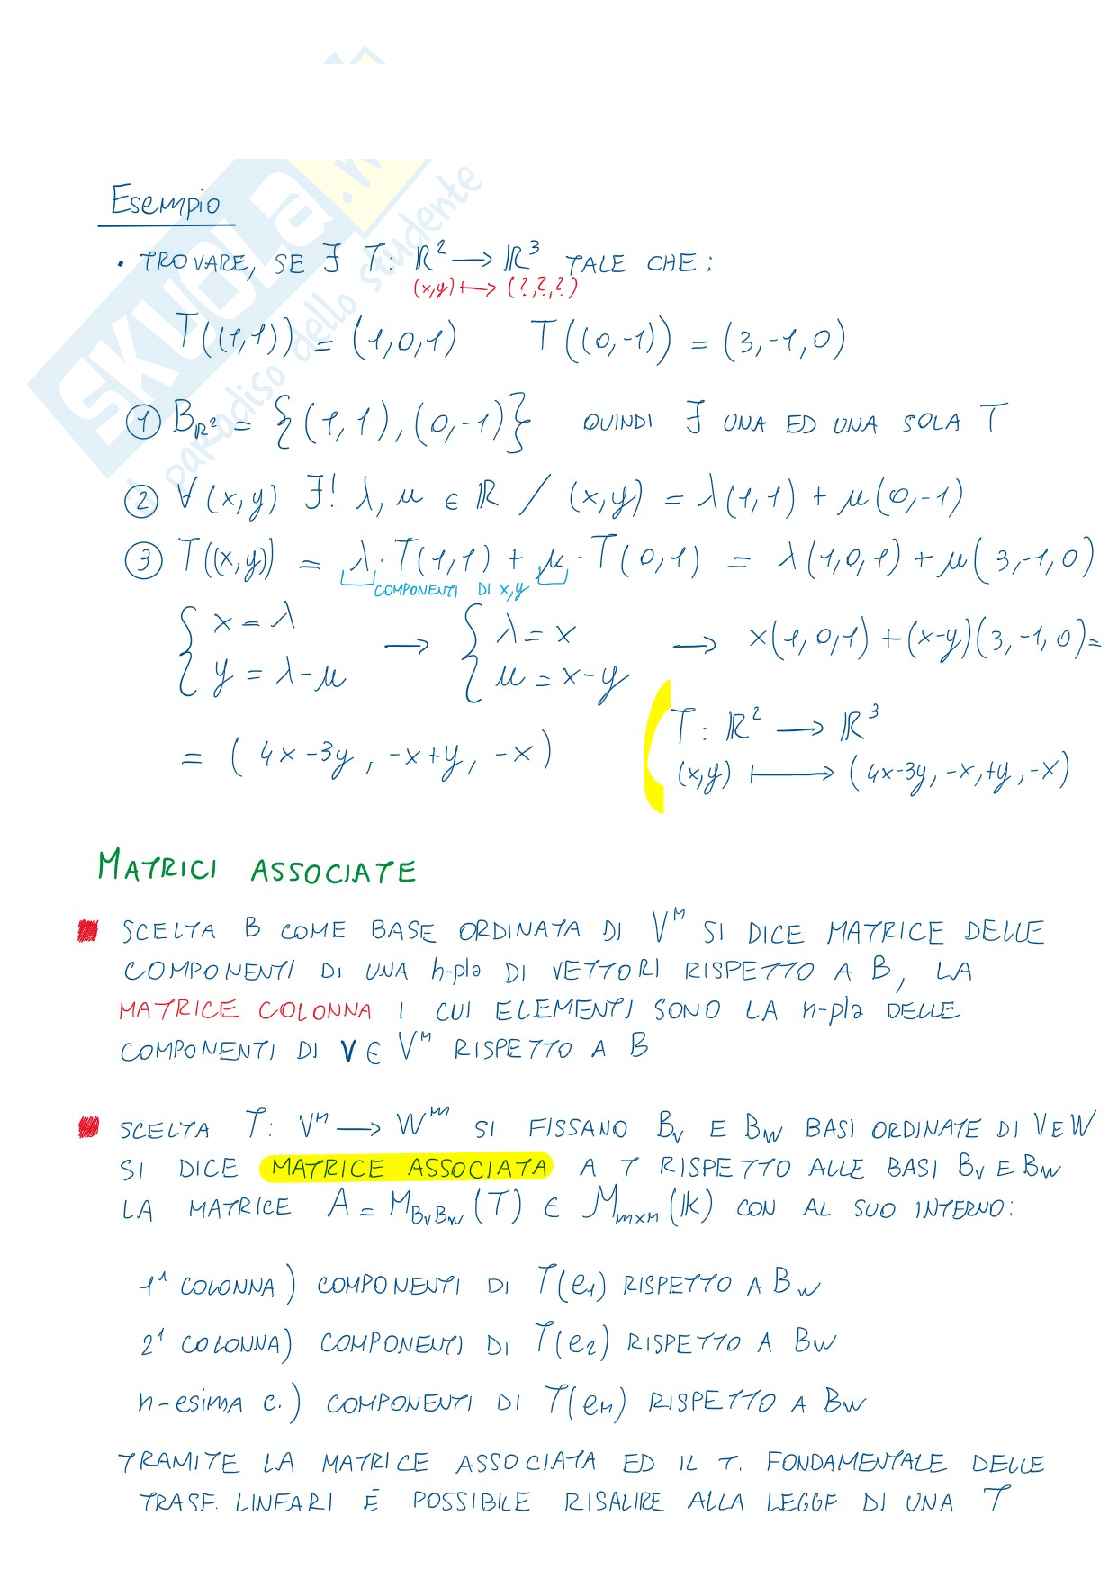 SKUOLA.n
il paradiso dello studente
Esempio
• TROVARE, SE ∃ T: ℝ² → ℝ³ TALE CHE:
(x,y) ↦ (?,?,?)
T((1,1)) = (1,0,1) T((0,-1)) = (3,-1,0)
① B_ℝ² = {(1,1),(0,-1)} QUINDI ∃ UNA ED UNA SOLA T
② ∀(x,y) ∃! λ,μ ∈ ℝ / (x,y) = λ(1,1) + μ(0,-1)
③ T((x,y)) = λ·T(1,1) + μ·T(0,1) = λ(1,0,1) + μ(3,-1,0)
COMPONENTI DI x,y
{ x = λ → { λ = x → x(1,0,1) + (x-y)(3,-1,0) =
{ y = λ-μ { μ = x-y
T: ℝ² → ℝ³
= (4x-3y, -x+y, -x)
(x,y) ↦ (4x-3y, -x,+y, -x)
MATRICI ASSOCIATE
SCELTA B COME BASE ORDINATA DI Vⁿ SI DICE MATRICE DELLE
COMPONENTI DI UNA n-pla DI VETTORI RISPETTO A B, LA
MATRICE COLONNA I CUI ELEMENTI SONO LA n-pla DELLE
COMPONENTI DI V ∈ Vⁿ RISPETTO A B
SCELTA T: Vⁿ → Wᵐ SI FISSANO Bv E Bw BASI ORDINATE DI V E W
SI DICE MATRICE ASSOCIATA A T RISPETTO ALLE BASI Bv E Bw
LA MATRICE A = M_BvBw (T) ∈ M_m×n (K) CON AL SUO INTERNO:
1ᵃ COLONNA) COMPONENTI DI T(e₁) RISPETTO A Bw
2ᵃ COLONNA) COMPONENTI DI T(e₂) RISPETTO A Bw
n-esima c.) COMPONENTI DI T(eₙ) RISPETTO A Bw
TRAMITE LA MATRICE ASSOCIATA ED IL T. FONDAMENTALE DELLE
TRASF. LINEARI È POSSIBILE RISALIRE ALLA LEGGE DI UNA T